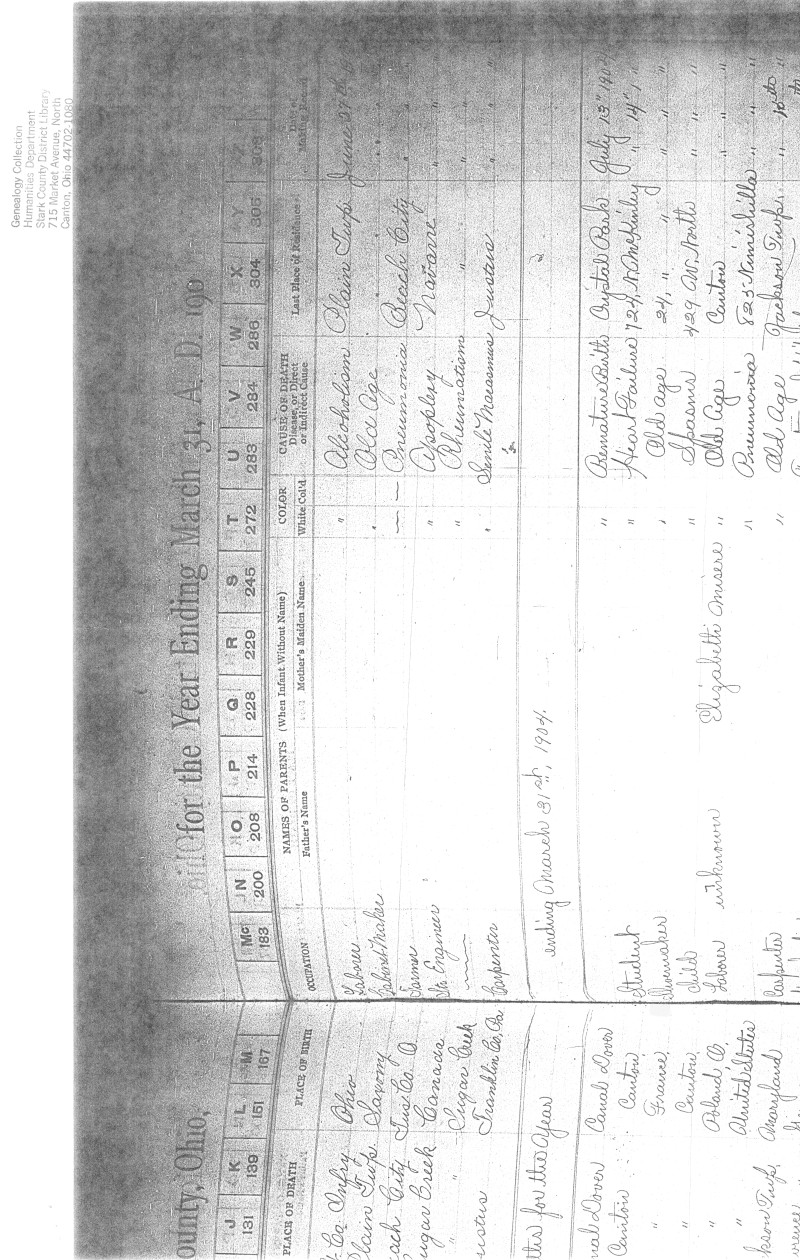 Genealogy Collection
Humanities Department
Stark County District Library
715 Market Avenue, North
Canton, Ohio 44702-1080
ounty, Ohio, for the Year Ending March 31, A. D. 190
J K L M Mc N O P Q R S T U V W X Y Z
131 139 151 167 183 200 208 214 228 229 245 272 283 284 286 304 305 308
PLACE OF DEATH PLACE OF BIRTH OCCUPATION NAMES OF PARENTS (When Infant Without Name) Father's Name Mother's Maiden Name COLOR White Col'd. CAUSE OF DEATH Disease, or Direct or Indirect Cause Last Place of Residence Date of Making Record
Co Infry Ohio Laborer " Alcoholism Plain Twps June 27th
Plain Twp. Saxony Cabinet Maker " Old Age "
ach City Tus Co O Farmer — — Pneumonia Beach City "
ugar Creek Canada Sta Engineer " Apoplexy Navarre "
" Sugar Creek — " Rheumatism " "
ustus Franklin Co, Pa Carpenter " Senile Marasmus Justus "
ths for the Year ending March 31st, 1904.
nal Dover Canal Dover " Premature Birth Crystal Park July 13" 1904
Canton Canton Student " Heart Failure 724 N McKinley " 14" "
" France Shoemaker " Old age 24, " " " "
" Canton Child " Spasms 429 W. North " "
" Poland, O. Laborer unknown Elizabeth " Old Age Canton " "
" United States " Pneumonia 823 Nimishilla " "
kson Twp. Maryland Carpenter " Old Age Jackson Twps. "